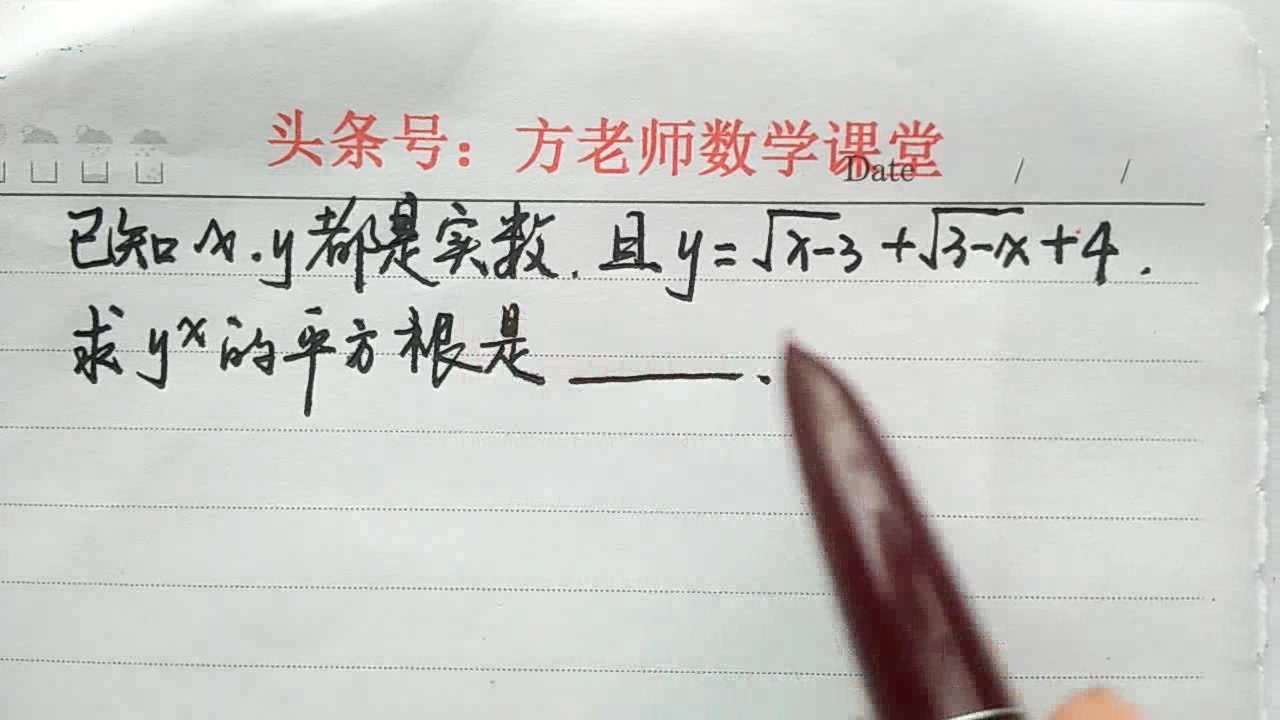 头条号：方老师数学课堂
Date / /
已知x.y都是实数.且y=√x-3+√3-x+4.
求yˣ的平方根是______.